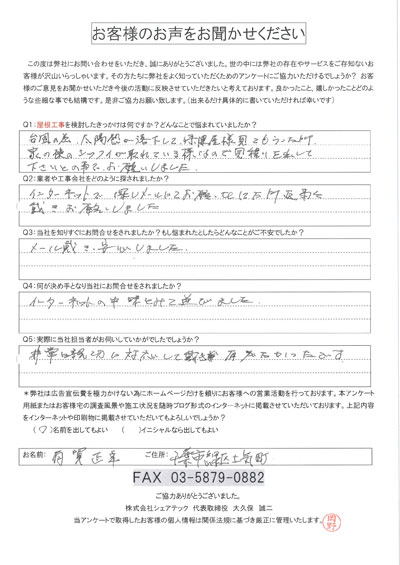 お客様のお声をお聞かせください
この度は弊社にお問い合わせをいただき、誠にありがとうございました。世の中には弊社の存在やサービスをご存知ないお
客様が沢山いらっしゃいます。その方たちに弊社をよく知っていただくためのアンケートにご協力いただけるでしょうか? お客
様のご意見をお聞かせいただき今後の活動に反映させていただきたいと考えております。良かったこと、嬉しかったことどのよ
うな些細な事でも結構です。是非ご協力お願い致します。(出来るだけ具体的に書いていただければ幸いです)
Q1:屋根工事を検討したきっかけは何ですか?どんなことで悩まれていましたか?
台風の為、太陽
家の
下さいとの事で、お願いしました
Q2:業者や工事会社をどのように探されましたか?
インターネットで
戴きお願いしました
Q3:当社を知りすぐにお問合せをされましたか? もし悩まれたとしたらどんなことがご不安でしたか?
メール戴き、安心しました
Q4:何が決め手となり当社にお問合せをされましたか?
インターネットの中味をみて選びました。
Q5:実際に当社担当者がお伺いしていかがでしたでしょうか?
非常に親切に対応して戴き
*弊社は広告宣伝費を極力かけない為にホームページだけを頼りにお客様への営業活動を行っております。本アンケート
用紙またはお客様宅の調査風景や施工状況を随時ブログ形式のインターネットに掲載させていただいております。上記内容
をインターネットや印刷物に掲載させていただいてもよろしいでしょうか?
( )名前を出してもよい ( )イニシャルなら出してもよい
お名前: ご住所: 千葉市緑区土気町
FAX 03-5879-0882
ご協力ありがとうございました。
株式会社シェアテック 代表取締役 大久保 誠二
当アンケートで取得したお客様の個人情報は関係法規に基づき厳正に管理いたします。